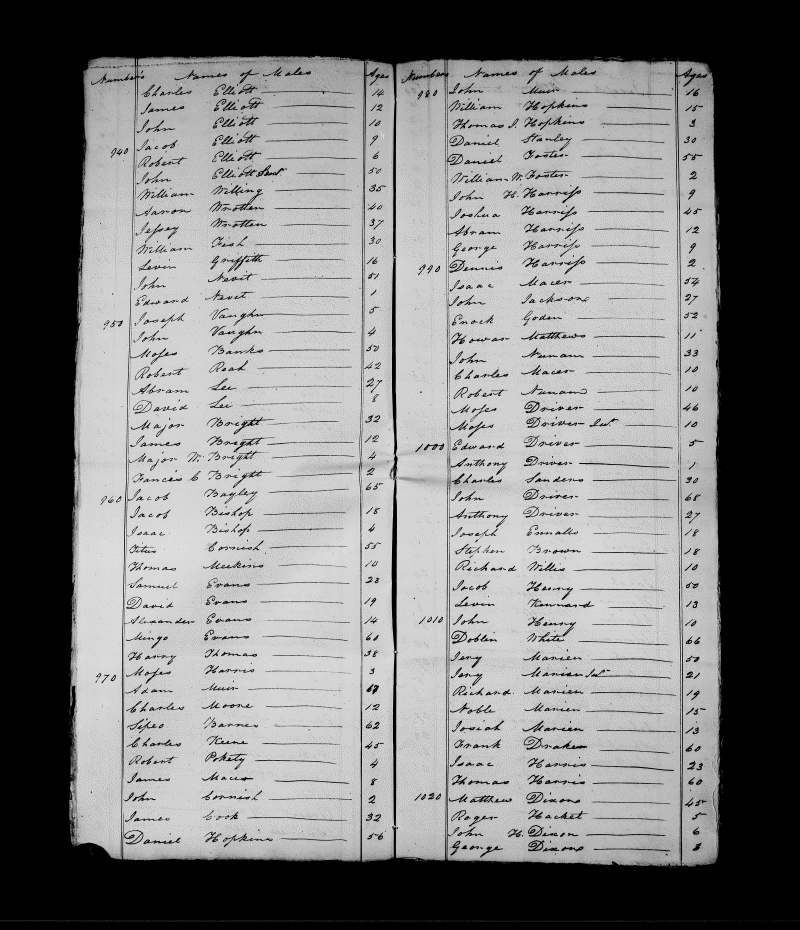 Numbers Names of Males Ages
Charles Elliott 14
James Elliott 12
John Elliott 10
940 Jacob Elliott 9
Robert Elliott 6
John Elliott Senr 50
William Willing 35
Aaron Wrotten 40
Jefsey Wrotten 37
William Fish 30
Levin Griffith 16
John Nevit 51
Edward Nevit 1
950 Joseph Vaughn 5
John Vaughn 4
Mofes Banks 50
Robert Roah 42
Abram Lee 27
David Lee 8
Major Bright 32
James Bright 12
Major W. Bright 4
Francis C Bright 2
960 Jacob Bayley 65
Jacob Bishop 18
Isaac Bishop 4
Titus Cornish 55
Thomas Meekins 10
Samuel Evans 28
David Evans 19
Alexander Evans 14
Mingo Evans 60
Harry Thomas 38
970 Mofes Harris 3
Adam Muir
Charles Moore 12
Sipeo Barnes 62
Charles Keene 45
Robert Pokety 4
James Maces 8
John Cornish 2
James Cook 32
Daniel Hopkins 56
Numbers Names of Males Ages
980 John Muir 16
William Hopkins 15
Thomas J. Hopkins 3
Daniel Stanley 30
Daniel Foster 55
William W. Foster 2
John H. Harrifs 9
Joshua Harrifs 45
Abram Harrifs 12
George Harrifs 9
990 Dennis Harrifs 2
Isaac Macer 54
John Jacksons 27
Enock Goden 52
Howar Matthews 11
John Nunam 33
Charles Macer 10
Robert Nunam 10
Mofes Driver 46
Mofes Driver Junr 10
1000 Edward Driver 5
Anthony Driver 1
Charles Sanders 30
John Driver 68
Anthony Driver 27
Joseph Ennalls 18
Stephen Brown 18
Richard Willis 10
Jacob Henry 50
Levin Kennard 13
1010 John Henry 10
Doblin White 66
Jery Marien 50
Jery Marien Junr 21
Richard Marien 19
Noble Marien 15
Josiah Marien 13
Frank Drakes 60
Isaac Harris 23
Thomas Harris 60
1020 Matthew Dixons 45
Roger Hacket 5
John H. Dixon 6
George Dixons 3